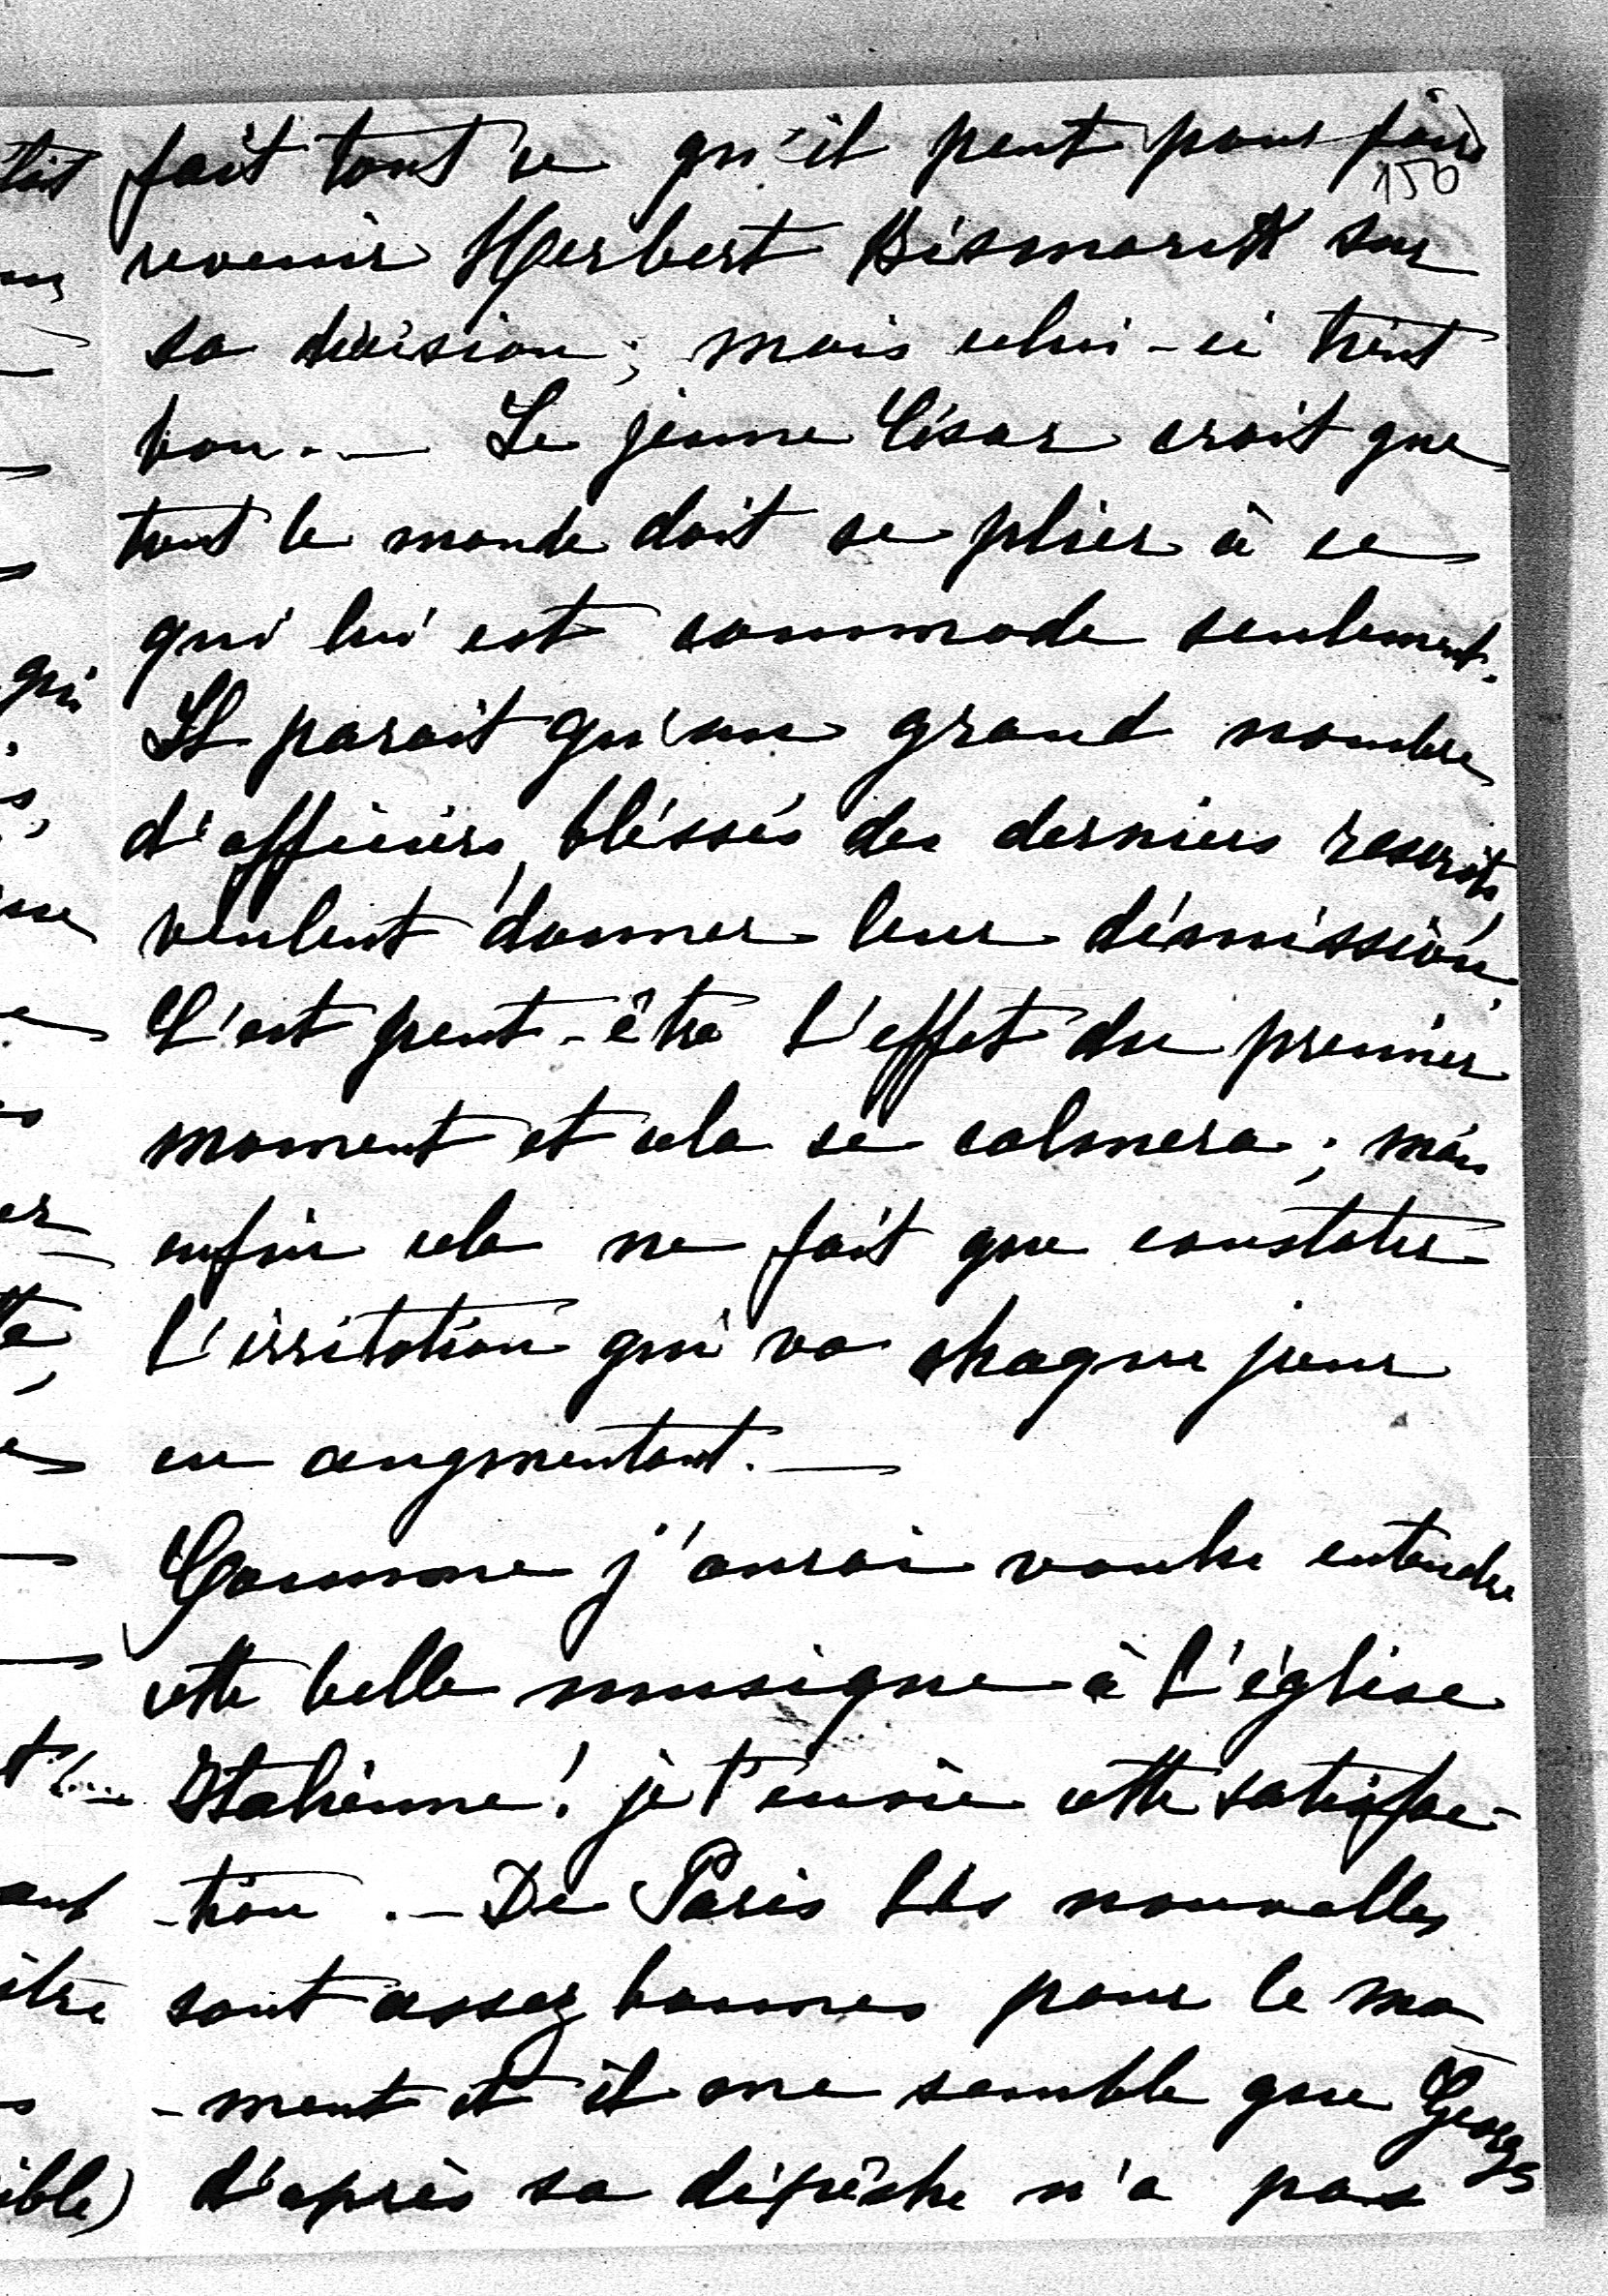 fait tout ce qu'il peut pour faire
150
revenir Herbert Bismarck sur
sa décision; mais celui-ci tient
bon. — Le jeune César croit que
tout le monde doit se plier à ce
qui lui est commode seulement.
Il parait qu'un grand nombre
d'officiers, bléssés des derniers rescrits,
veulent donner leur démission.
C'est peut-être l'effet du premier
moment et cela se calmera; mais
enfin cela ne fait que constater
l'irritation qui va chaque jour
en augmentant. —
Comme j'aurai voulu entendre
cette belle musique à l'église
Italienne! je t'envie cette satisfac-
-tion. — De Paris les nouvelles
sont assez bonnes pour le mo
-ment et il me semble que Georges
d'après sa dépêche n'a pas